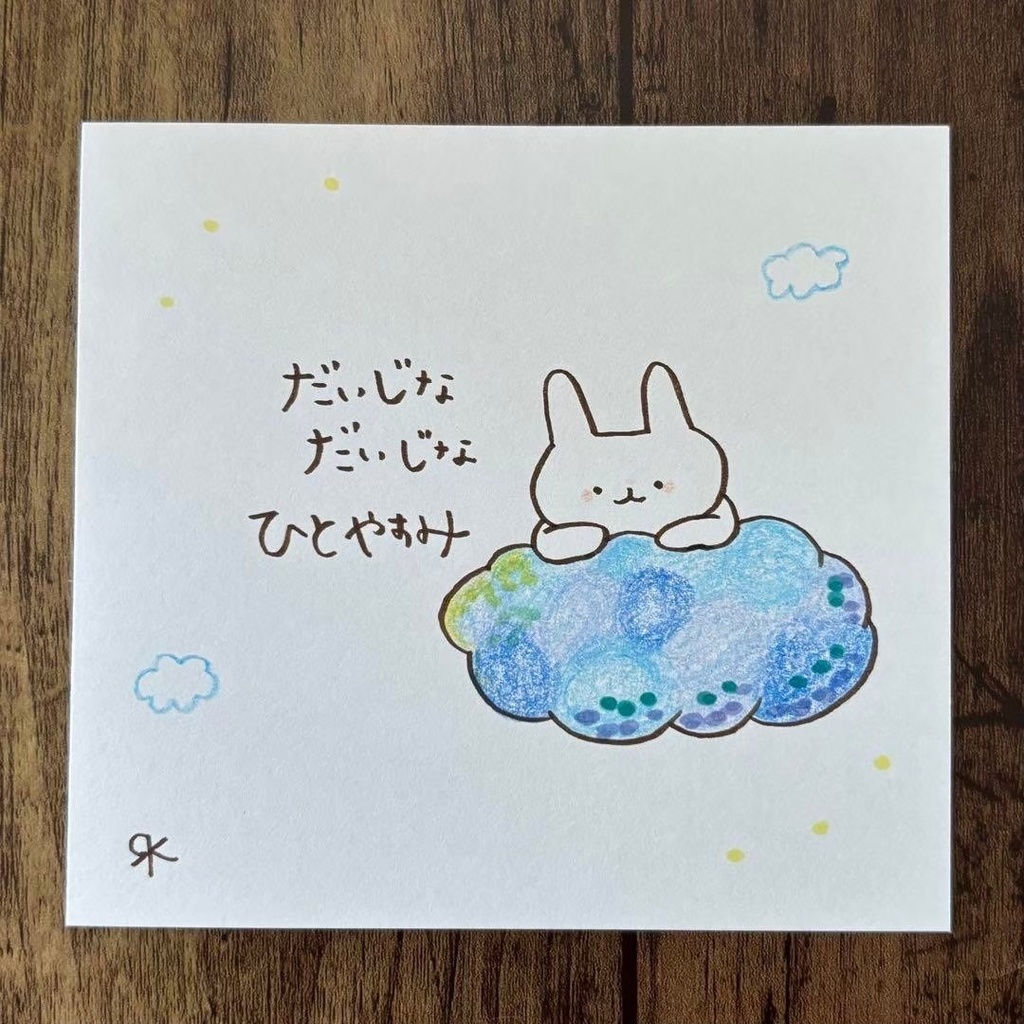 だいじな
だいじな
ひとやすみ